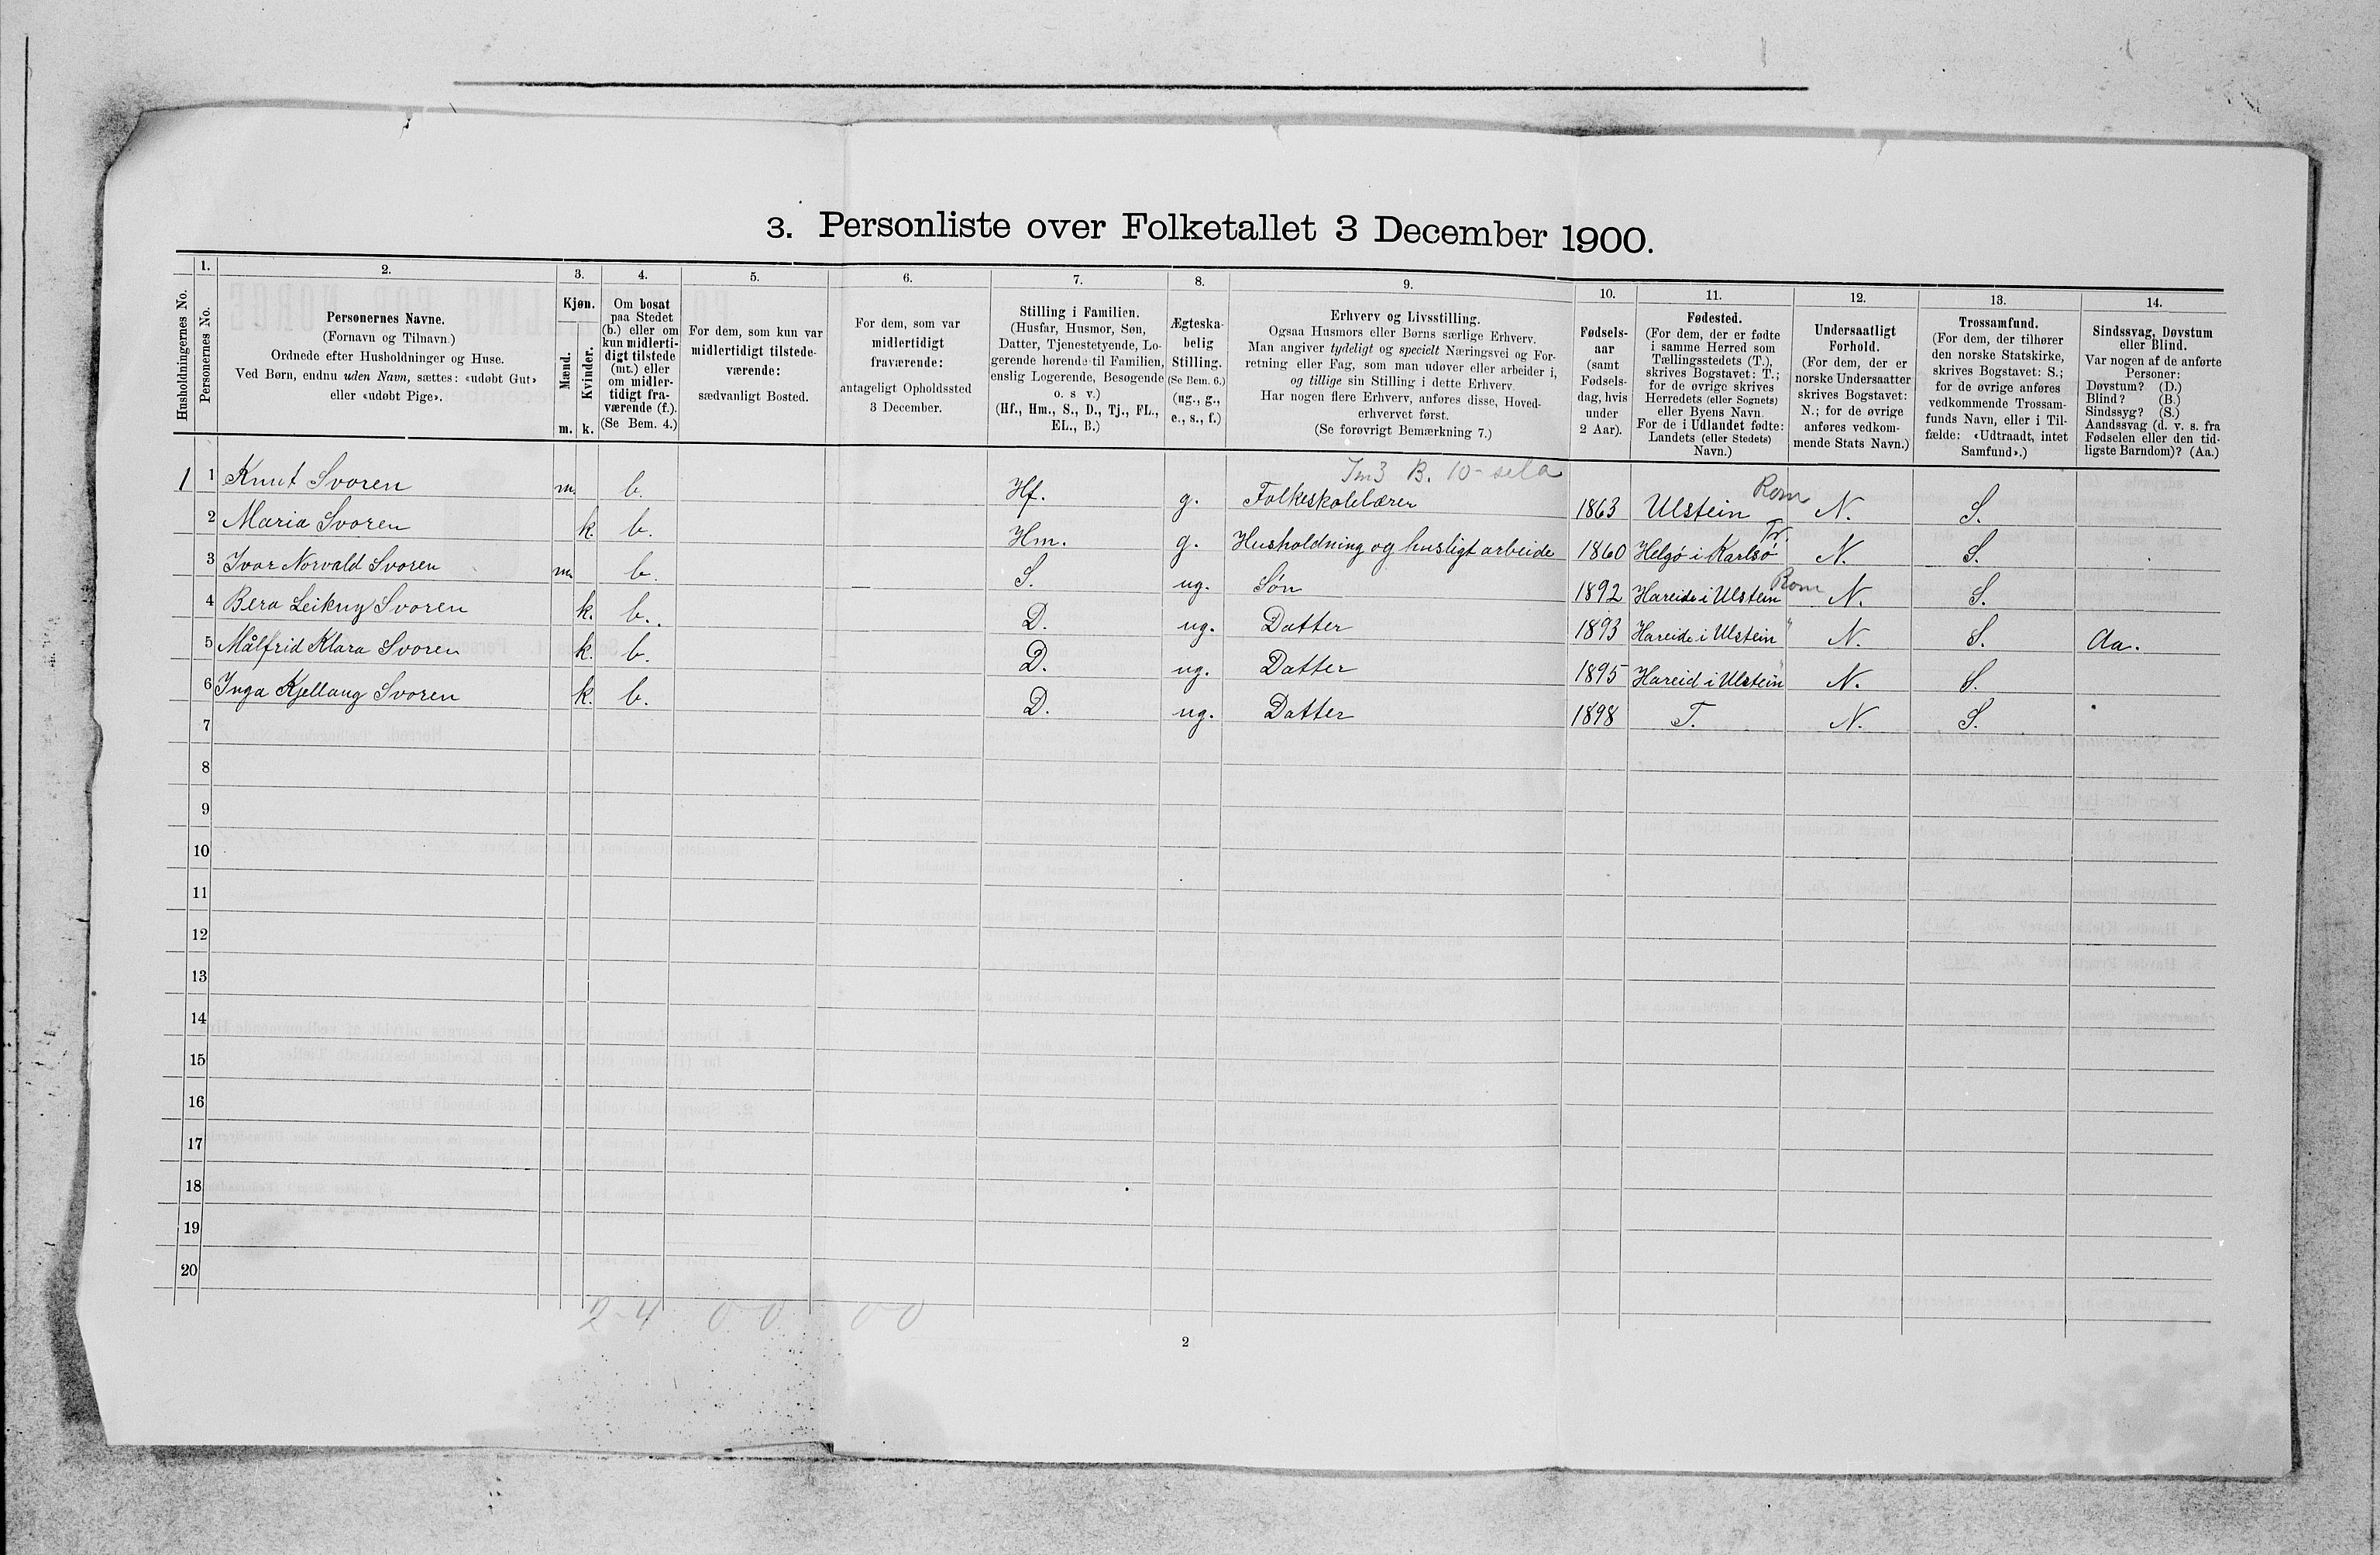 3. Personliste over Folketallet 3 December 1900.
Husholdningernes No.
1.
Personernes No.
2.
Personernes Navne.
(Fornavn og Tilnavn.)
Ordnede efter Husholdninger og Huse.
Ved Børn, endnu uden Navn, sættes: «udøbt Gut»
eller «udøbt Pige».
3.
Kjøn.
Mænd.
Kvinder.
m. k.
4.
Om bosat
paa Stedet
(b.) eller om
kun midlerti-
digt tilstede
(mt.) eller
om midler-
tidigt fra-
værende (f.).
(Se Bem. 4.)
5.
For dem, som kun var
midlertidigt tilstede-
værende:
sædvanligt Bosted.
6.
For dem, som var
midlertidigt
fraværende:
antageligt Opholdssted
3 December.
7.
Stilling i Familien.
(Husfar, Husmor, Søn,
Datter, Tjenestetyende, Lo-
gerende hørende til Familien,
enslig Logerende, Besøgende
o. s v.)
(Hf., Hm., S., D., Tj., FL.,
EL., B.)
8.
Ægteska-
belig
Stilling.
(Se Bem. 6.)
(ug., g.,
e., s., f.)
9.
Erhverv og Livsstilling.
Ogsaa Husmors eller Børns særlige Erhverv.
Man angiver tydeligt og specielt Næringsvei og For-
retning eller Fag, som man udøver eller arbeider i,
og tillige sin Stilling i dette Erhverv.
Har nogen flere Erhverv, anføres disse, Hoved-
erhvervet først.
(Se forøvrigt Bemærkning 7.)
10.
Fødsels-
aar
(samt
Fødsels-
dag, hvis
under
2 Aar).
11.
Fødested.
(For dem, der er fødte
i samme Herred som
Tællingsstedets (T.),
skrives Bogstavet: T.;
for de øvrige skrives
Herredets (eller Sognets)
eller Byens Navn.
For de i Udlandet fødte:
Landets (eller Stedets)
Navn.)
12.
Undersaatligt
Forhold.
(For dem, der er
norske Undersaatter
skrives Bogstavet:
N.; for de øvrige
anføres vedkom-
mende Stats Navn.)
13.
Trossamfund.
(For dem, der tilhører
den norske Statskirke,
skrives Bogstavet: S.;
for de øvrige anføres
vedkommende Trossam-
funds Navn, eller i Til-
fælde: «Udtraadt, intet
Samfund».)
14.
Sindssvag, Døvstum
eller Blind.
Var nogen af de anførte
Personer:
Døvstum? (D.)
Blind? (B.)
Sindssyg? (S.)
Aandssvag (d. v. s. fra
Fødselen eller den tid-
ligste Barndom)? (Aa.)
1 1 Knut Svoren m. b. Hf. g. Folkeskolelærer 1863 Ulstein Rom N. S.
2 Maria Svoren k. b. Hm. g. Husholdning og husligt arbeide 1860 Helgö i Karlsö Tr. N. S.
3 Ivar Norvald Svoren m. b. S. ug. Søn 1892 Hareide i Ulstein Rom N. S.
4 Bera Leikny Svoren k. b. D. ug. Datter 1893 Hareide i Ulstein " N. S. Aa.
5 Målfrid Klara Svoren k. b. D. ug. Datter 1895 Hareid i Ulstein " N. S.
6 Inga Kjellaug Svoren k. b. D. ug. Datter 1898 T. N. S.
7
8
9
10
11
12
13
14
15
16
17
18
19
20
2-4 0 0 0 0
2